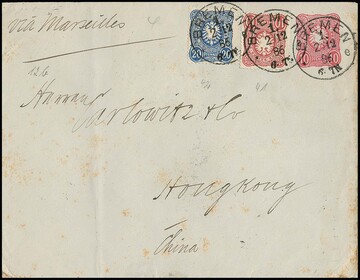 via Marseilles
BREMEN
1.
2/12
86
6-7N.
BREMEN
BREMEN
1.
2/12
86
6-7N.
e
20
20
10
10
Carlowitz & Co
Hongkong
China